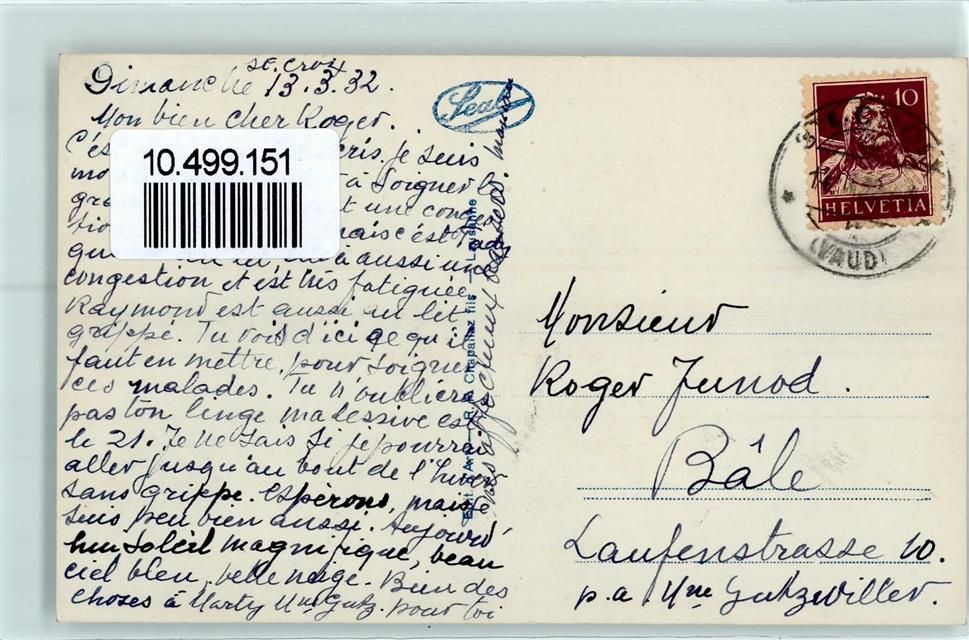 St. Croix
Dimanche 13.3.32.
Mon bien cher Roger.
C'es cris. je suis
mo à soigner
gra t une conges
tio mais c'est
qu a aussi un
congestion, et est très fatiguée
Raymond est aussi au lit
grippé. Tu vois d'ici ce qu'il
faut en mettre, pour soigner
ces malades. Tu n'oubliera
pas ton linge ma lessive est
le 21. Je ne sais si je pourrai
aller jusqu'au bout de l'hiver
sans grippe. Espérons, mais je
suis peu bien aussi. Aujourd'
hui soleil magnifique, beau
ciel bleu, belle neige. Bien des
choses à Marty Mme Gutz. pour toi
mes affectueux baisers. maman
10.499.151
Seal
Edit. d'Art — R. Chapallaz fils — Lausanne
10
HELVETIA
(VAUD)
Monsieur
Roger Junod.
Bâle
Laufenstrasse 10.
p.a Mme Gutzwiller.